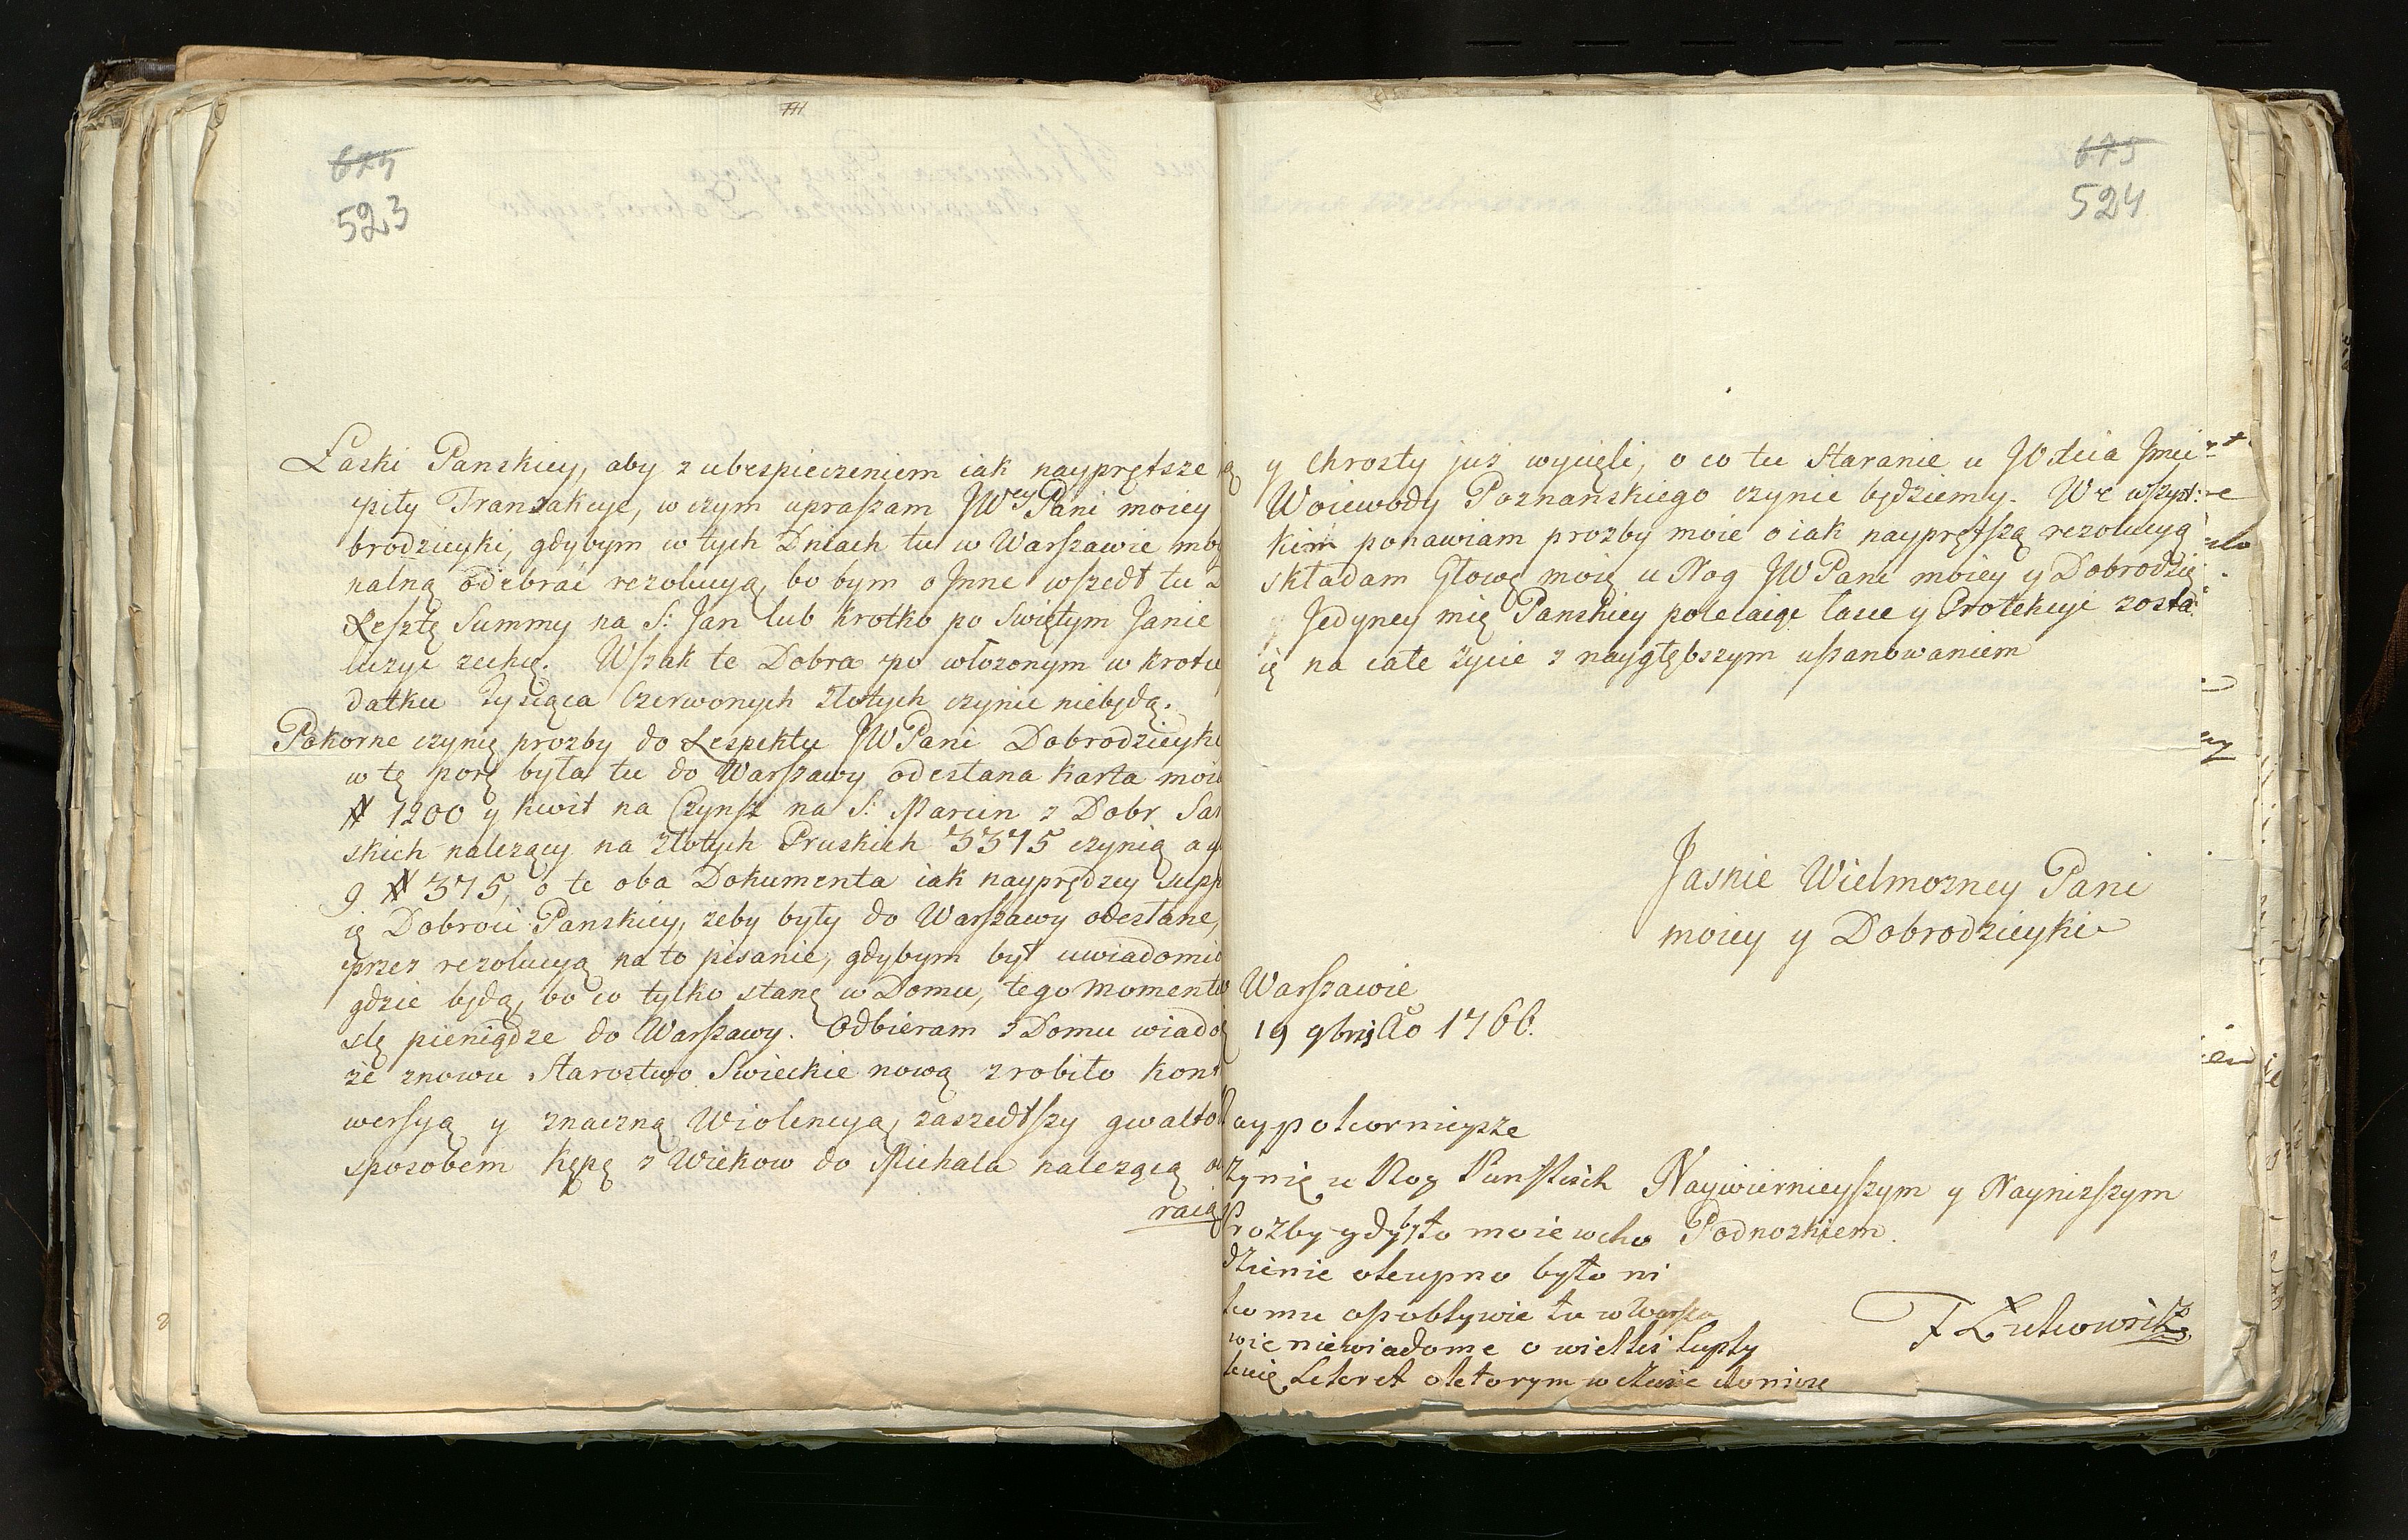 711
673
523
Łaski Panskiey, aby z ubespieczeniem iak nayprętsze
piły Tranzakcye, w czym upraszam JWey Pani moiey
brodzieyki, gdybym w tych Dniach tu w Warszawie mog
nalną odebrać rezolucyą, bo bym o Inne wszedł tu
Resztę Summy na S: Jan lub krotko po Swiętym Janie
liczyć zechcę. Wszak te Dobra po włozonym w krotce
datku tysiąca Czerwonych Złotych czynić niebędą.
Pokorne czynię prozby do Respektu JWPani Dobrodzieyki
w tę porę była tu do Warszawy odesłana karta moia
# 1200 y kwit na Czynsz na S: Marcin z Dobr Sar
skich nalezący na złotych Pruskich 3375 czynią a
9 # 375, o te oba Dokumenta iak nayprędzey supp
ię Dobroci Panskiey, zeby były do Warszawy odesłane,
przez rezolucyą na to pisanie, gdybym był uwiadomio
gdzie będą, bo co tylko stanę w Domu, tego momentu
slę pieniądze do Warszawy. Odbieram z Domu wiado
ze znowu Starostwo Swieckie nową zrobiło kont
wersyą y znaczną Wiolencyą, zaszedłszy gwałto
sposobem Kępę z Wiekow do Michala nalezącą
raią
675
524
y Chrosty juz wycięli, o co tu staranie u JWdzia Jmci
Woiewody Poznanskiego czynic będziemy. We wszyst:
kim ponawiam prozby moie o iak nayprętszą rezolucyą
składam Głowę moię u Nog JWPani moiey y Dobrodzie
Jedyney mię Panskiey polecaiąc łasce y Protekcyi zosta:
ię na całe zycie z naygłębszym uszanowaniem
Jasnie Wielmozney Pani
moiey y Dobrodzieyki
Warszawie
19 9bris Ao 1766.
aypokornieysze
czynię u Nog Panskich
Prozby gdyby to moie wcho
dzenie okupno było ni
komu osobliwie tu w Warsza
wie niewiadome o wielki suply
kuię Sekret o ktorym w czasie doniose
Naywiernieyszym y Naynizszym
Podnozkiem.
F Zukowski